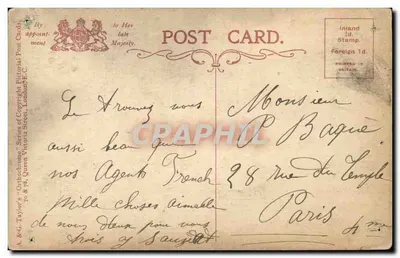 By
appoint-
ment
to Her
late
Majesty.
POST CARD.
Inland
½d.
Stamp
Foreign 1d.
PRINTED IN
BRITAIN
A. & G. Taylor's "Orthochrome" Series of Copyright Pictorial Post Cards,
70 & 78, Queen Victoria Street, London, E.C.
Le trouvez vous
aussi beau que
nos Agents French
Mille choses aimables
de nous deux pour vous
trois
Monsieur
P. Baqué
28 rue du Temple
Paris
4me
CPAPHIL